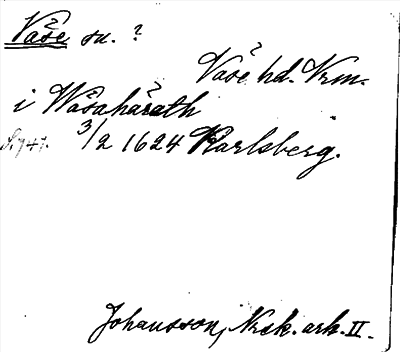 Våse sn. ?
Våse hd. Vrm.
i Wåsahärath
S. 747. 3/2 1624 Karlsberg.
Johansson, Nrsk. ark. II.